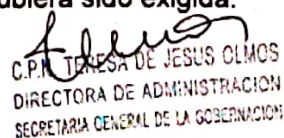 ubiera sido exigida.
C.P.N. TERESA DE JESUS OLMOS
DIRECTORA DE ADMINISTRACION
SECRETARIA GENERAL DE LA GOBERNACION